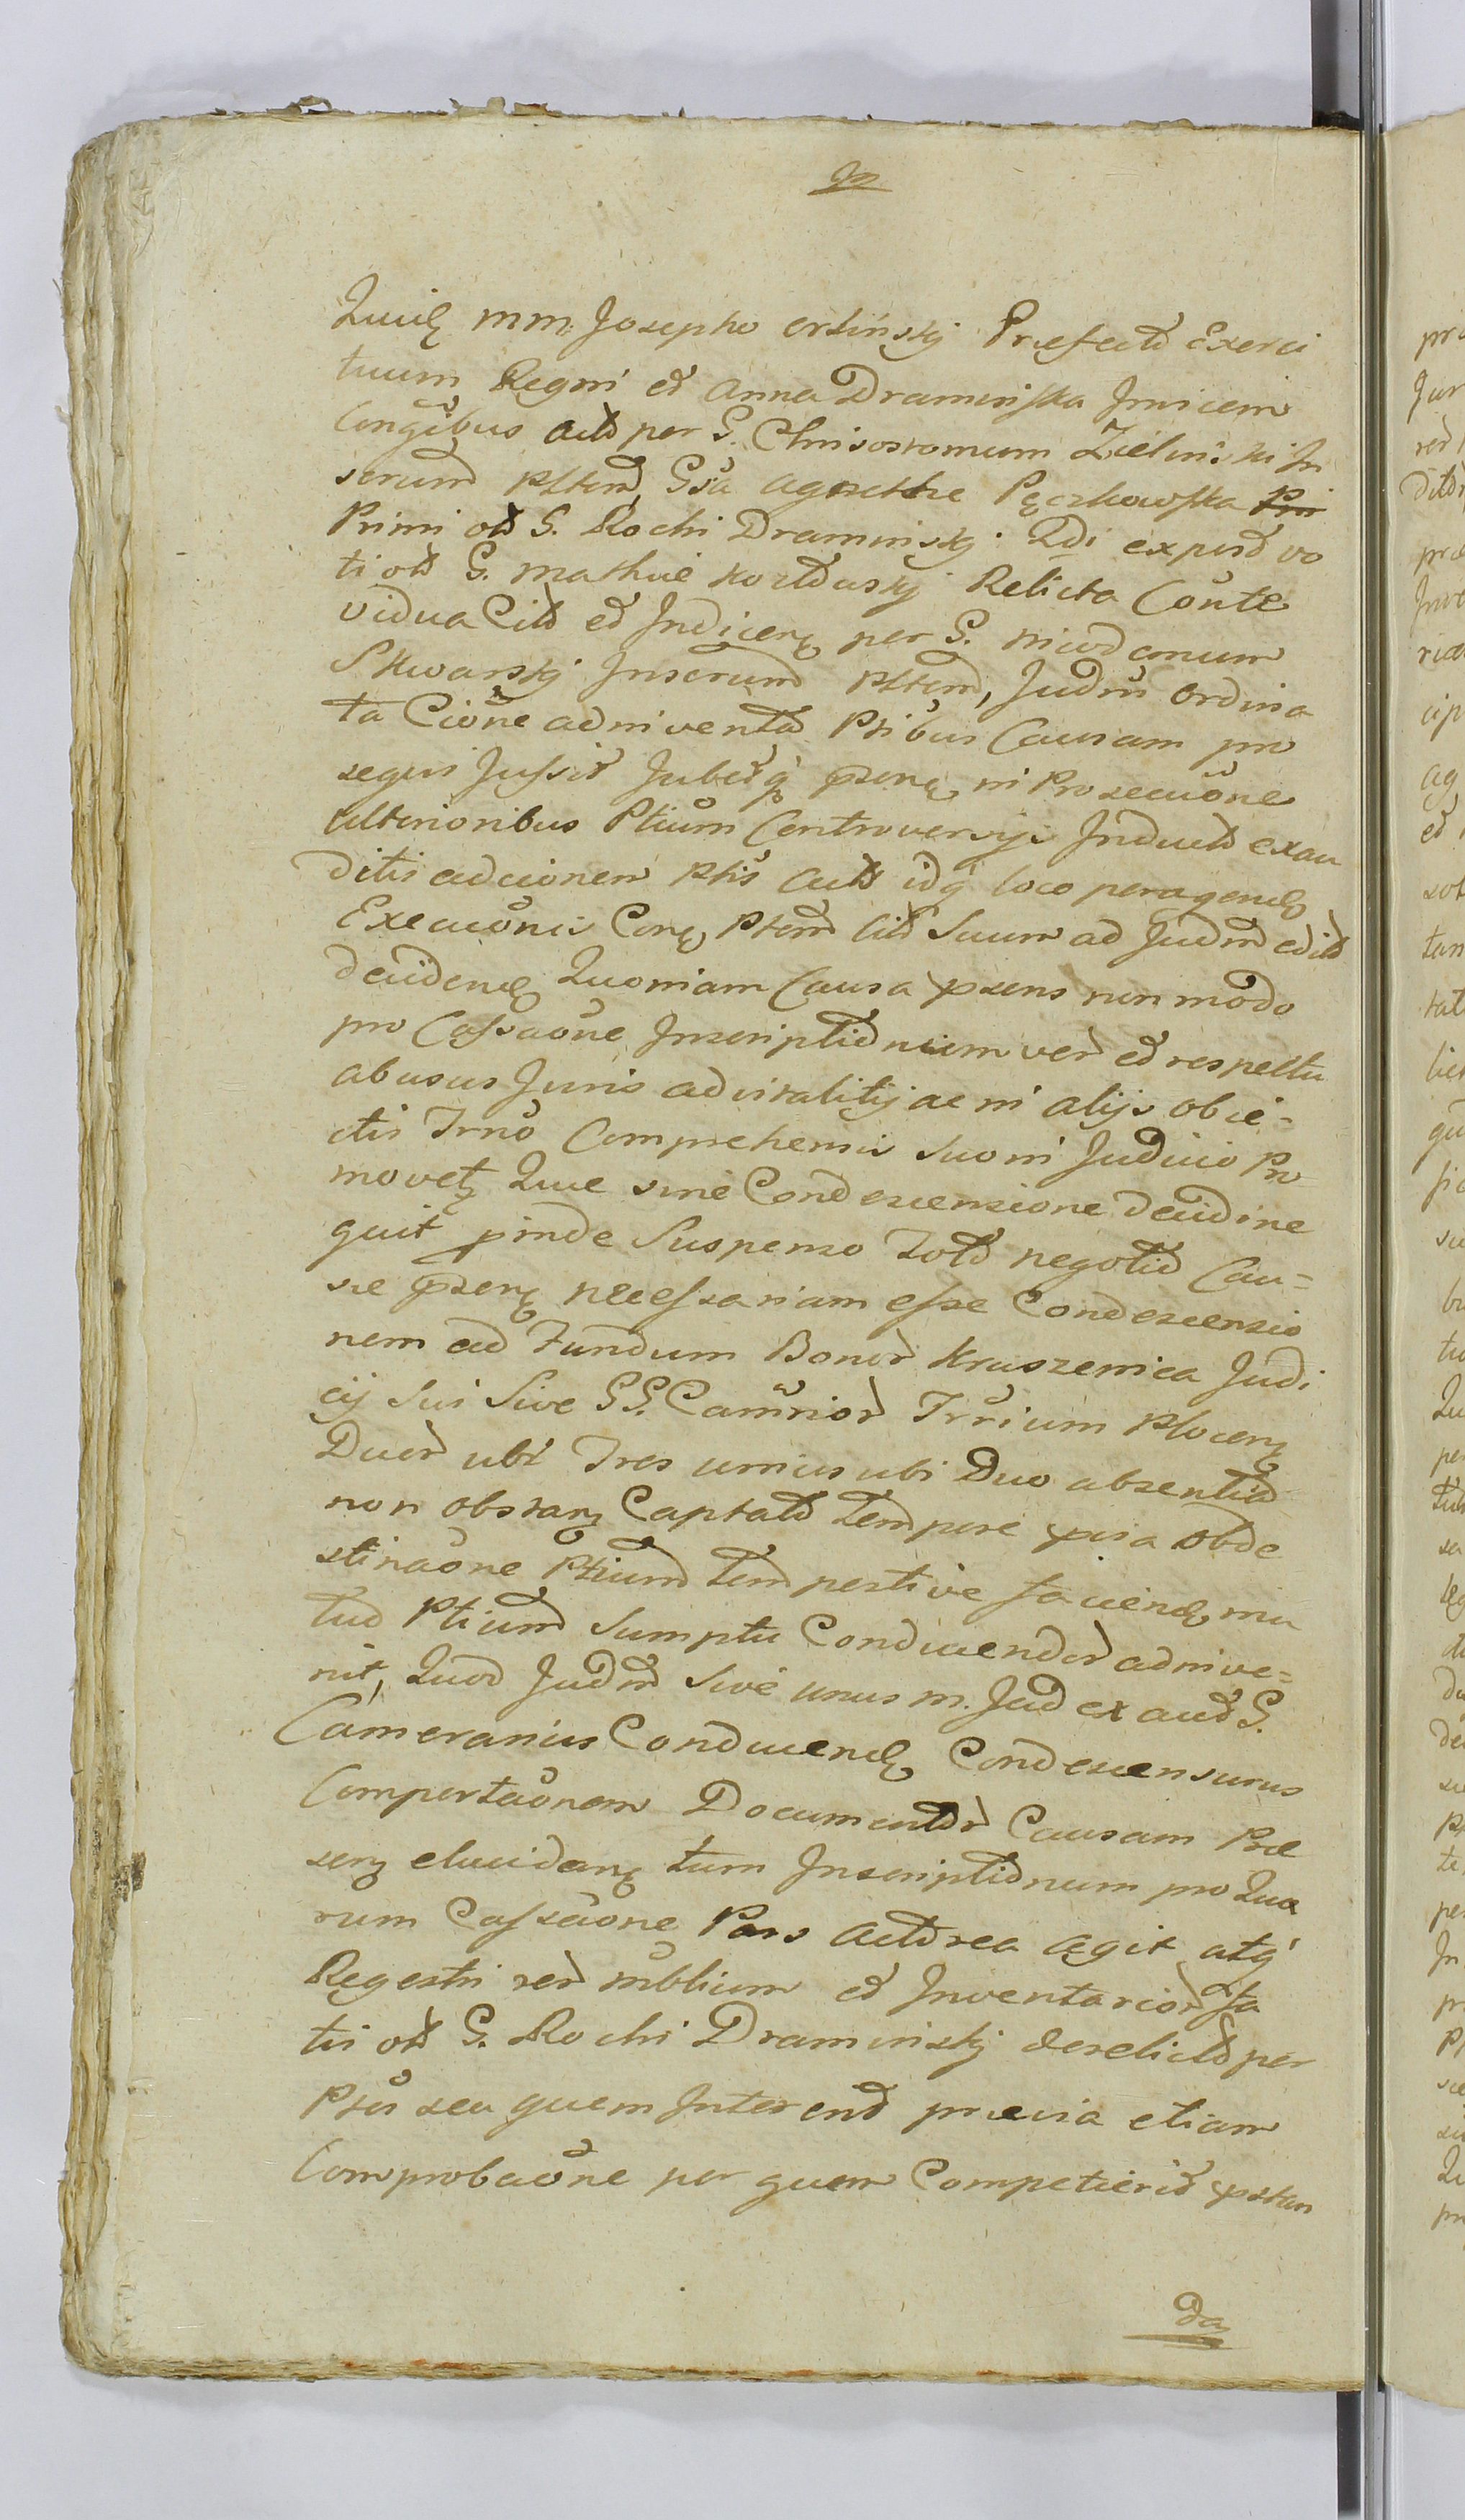 In
Quilz MM. Josepho Orliński Præfecto Exerci
tuum Regni et Anna Draminska Invicem
Congibus Act per G. Chrisostomum Zielinski In
serund Pltem, Gsa Agnethe Pęczkowska Pri
Primi olt G. Rochi Draminskj 2di expost vo
ti olt G. Mathiæ Relicta Conte
vidua Cit et Indicen per G. Nicodemum
Skwarskj Inserund Pltem, Judm ordina
ta Cione adinventa Ptibus Causam pro
sequi Jussit Jubetq psene in Prosecuone
ulterioribus Ptium Controversys Inducto exau
ditis adcionem Ptis Act idq loco peragend
Execuonis Conz Ptem Cit Suum ad Judm edito
decidend Quoniam Causa psens non modo
pro Cassaone Inscriptionum ver et respectu
abusus Juris advitalitÿ ac in alijs obie=
ctis Trno Comprehensis suo in Judicio Pro
movetz Quæ sine Condescensione decidi ne
quit pinde Suspenso toto negotio Cau=
sæ psenz necessariam esse Condescensio
nem ad Fundum Bonor Kraszenica Judi
cÿ Sui Sive GG. Camrior Trrium Plocenz
Duor ubi Tres unius ubi Duo absentia
non obstanz Captato tempore pvia obde
stinaone Ptium tempestive faciend mu
tuo Ptium Sumptu Conducendor adinve=
nit, Quod Judm Sive unus M. Jud ex aud G.
Camerarius Conducend Condescensurus
Comportaonem Documentor Causam Præ
senz elucidanz tum Inscriptionum pro Qua
rum Cassaone Pars Actorea agit atq
Regestri rer mblium et Inventarior fa
tis olt G. Rochi Draminskj derelicto per
Ptes seu quem Interend prævia etiam
Comprobaone per quem Competierit pstan
da